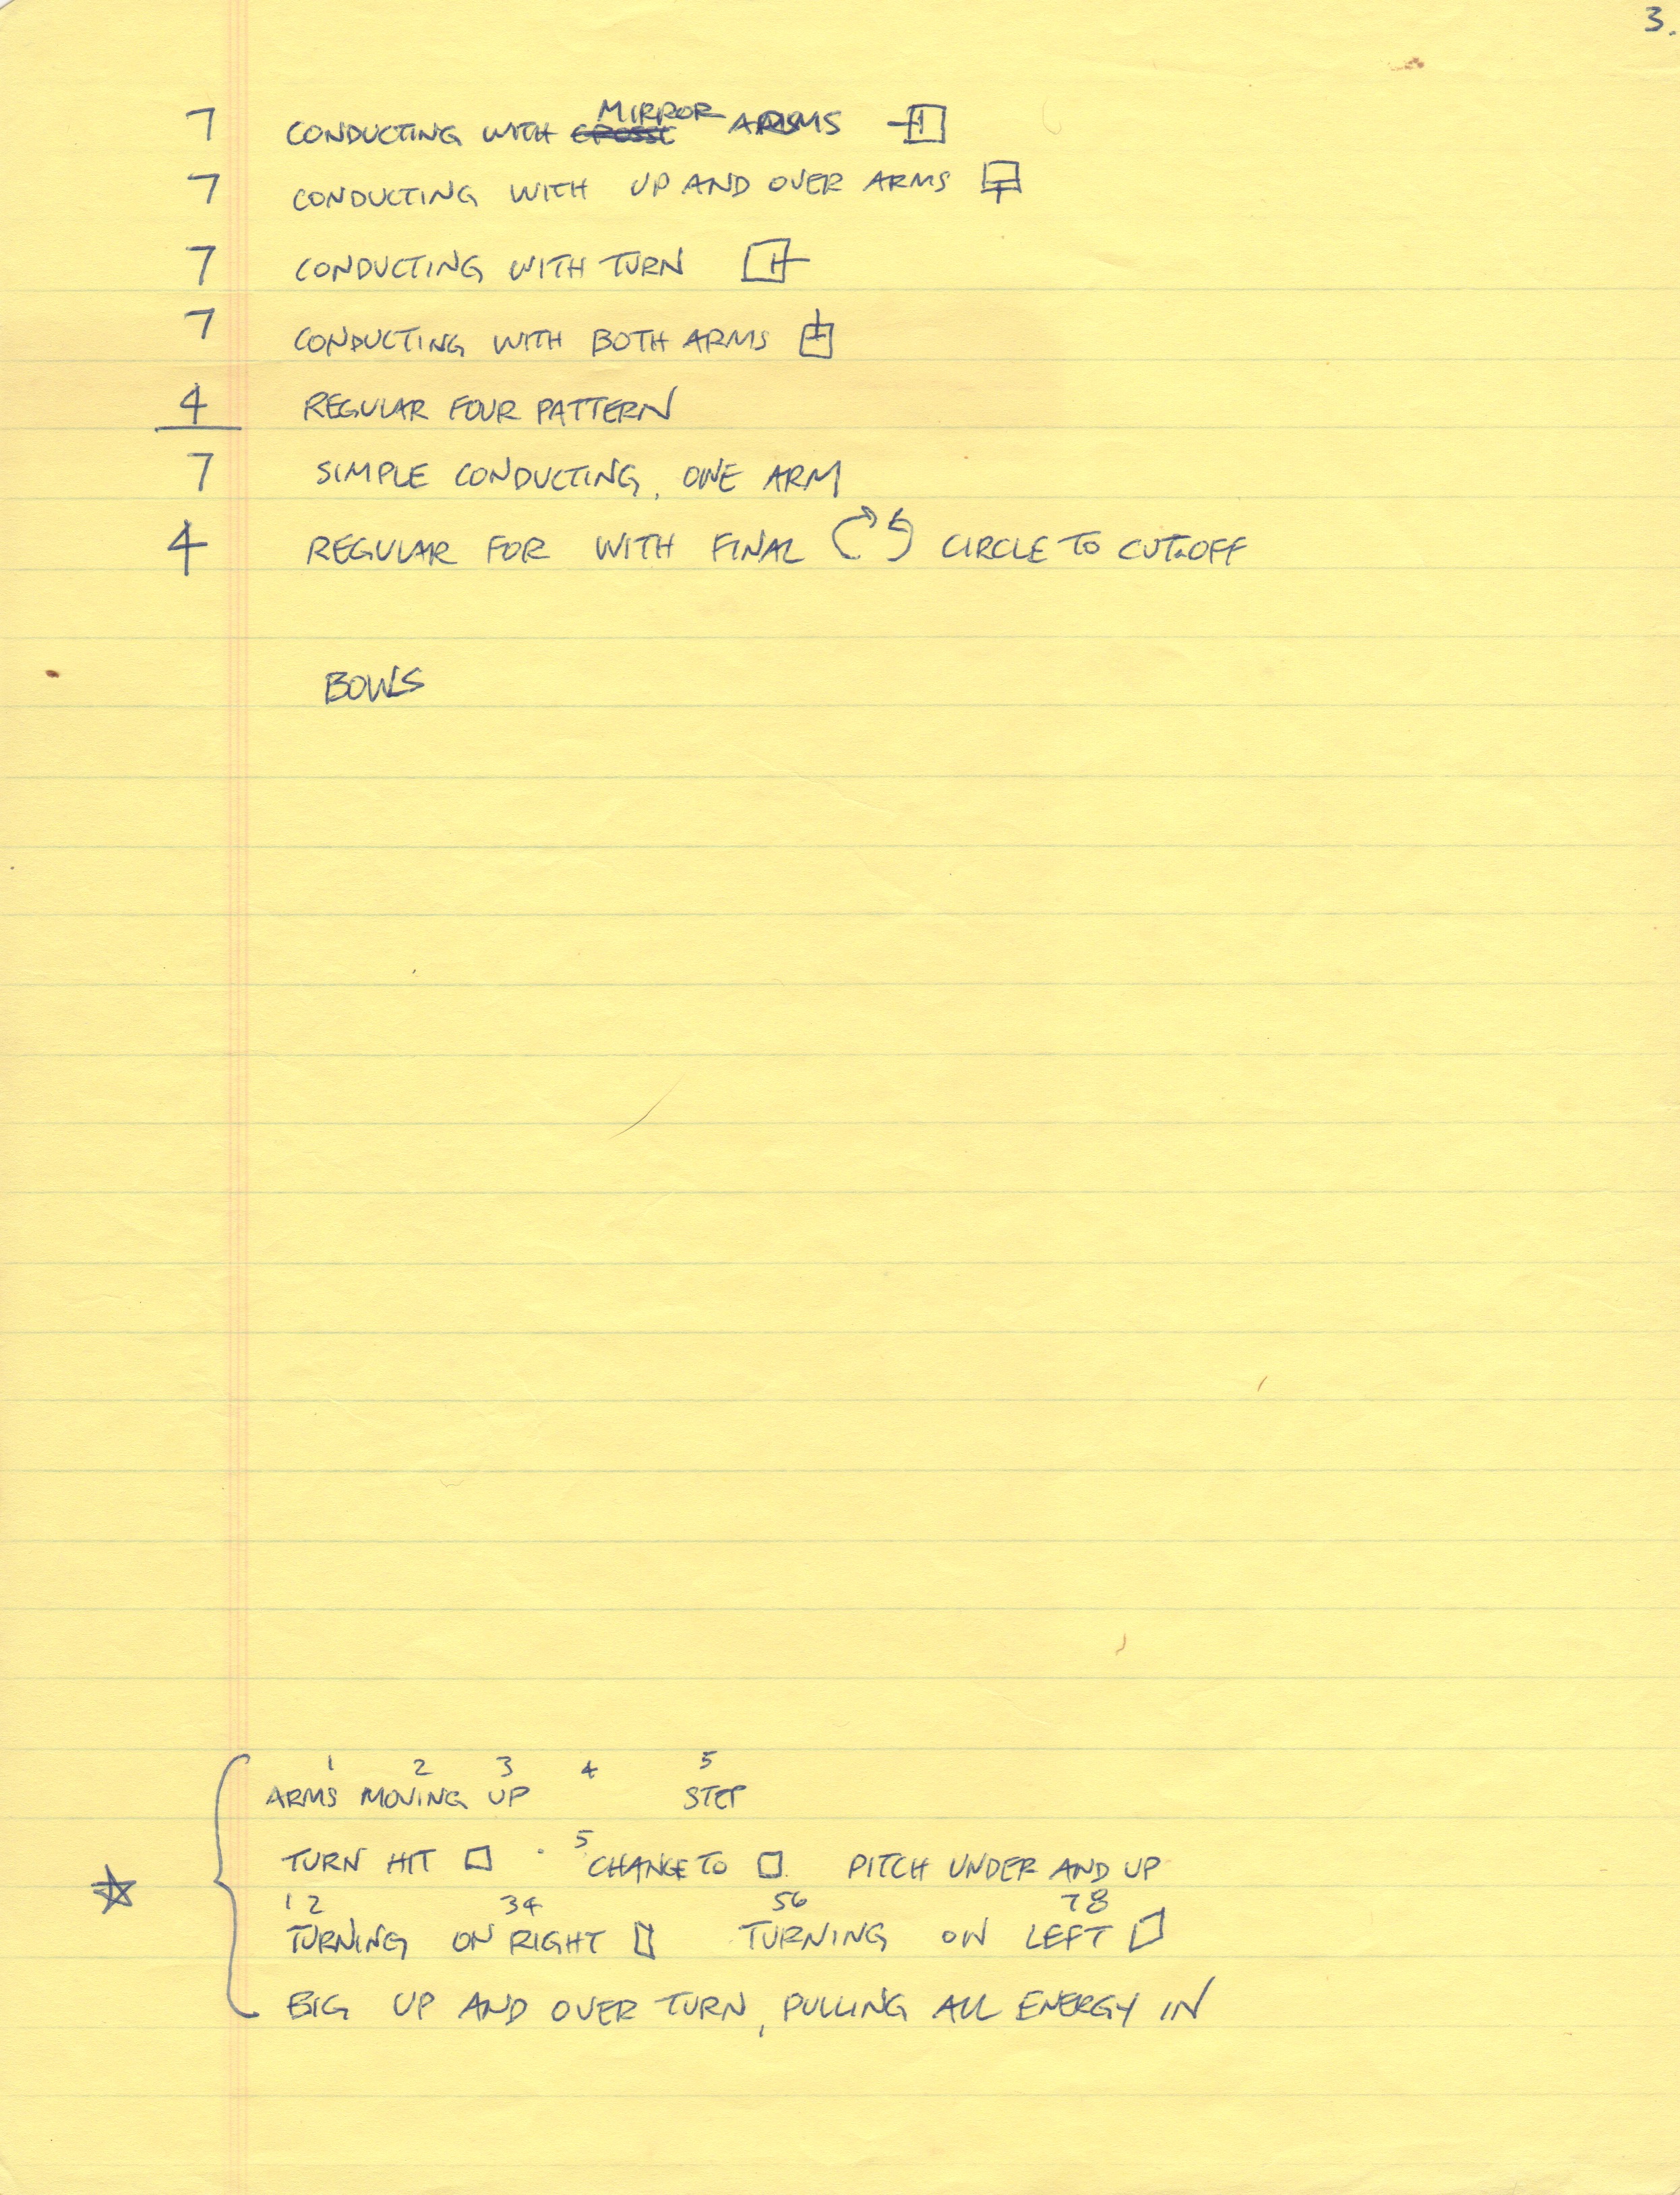 3.
7 CONDUCTING WITH MIRROR ARMS
7 CONDUCTING WITH UP AND OVER ARMS
7 CONDUCTING WITH TURN
7 CONDUCTING WITH BOTH ARMS
4 REGULAR FOUR PATTERN
7 SIMPLE CONDUCTING, ONE ARM
4 REGULAR FOR WITH FINAL CIRCLE TO CUT-OFF
BOWS
1 2 3 4 5
ARMS MOVING UP STEP
TURN HIT 5 CHANGE TO PITCH UNDER AND UP
1 2 3 4 5 6 7 8
TURNING ON RIGHT TURNING ON LEFT
BIG UP AND OVER TURN, PULLING ALL ENERGY IN